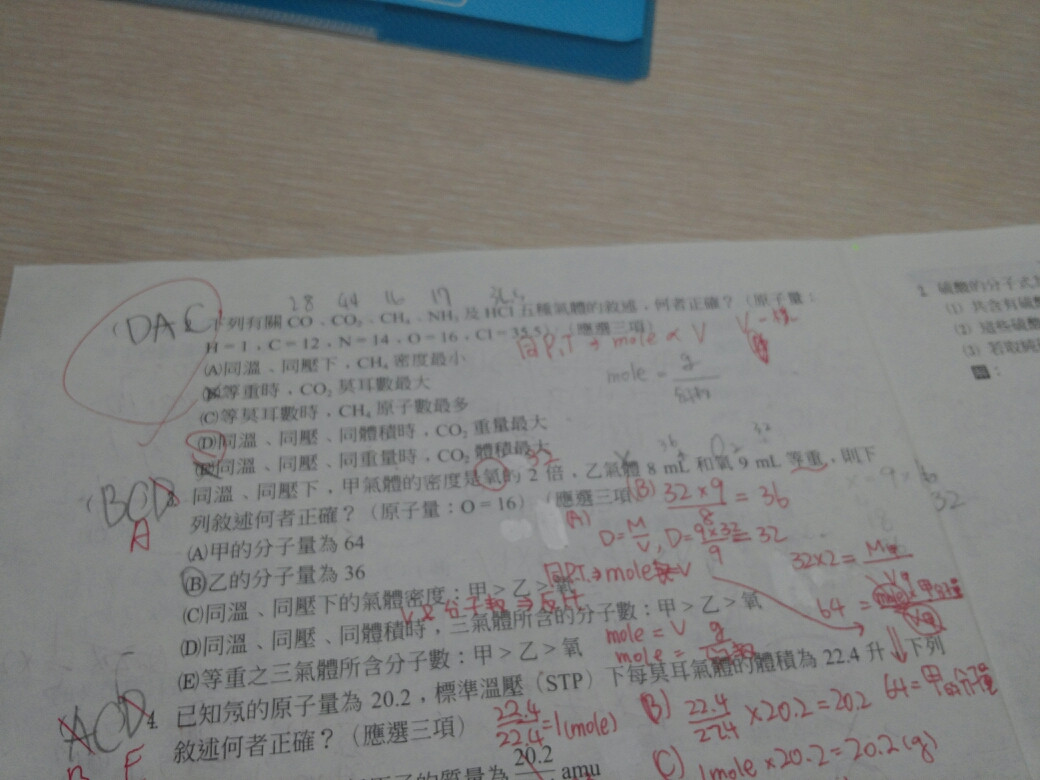 28 44 16 17 36.5
(DAC 下列有關 CO、CO₂、CH₄、NH₃ 及 HCl 五種氣體的敘述，何者正確？（原子量：
H＝1，C＝12，N＝14，O＝16，Cl＝35.5）（應選三項）
同P,T → mole ∝ V
(A)同溫、同壓下，CH₄ 密度最小
(B)等重時，CO₂ 莫耳數最大
mole = g
(C)等莫耳數時，CH₄ 原子數最多
(D)同溫、同壓、同體積時，CO₂ 重量最大
(E)同溫、同壓、同重量時，CO₂ 體積最大
32
(BCD 同溫、同壓下，甲氣體的密度是氧的 2 倍，乙氣體 8 mL 和氧 9 mL 等重，則下
A
列敘述何者正確？（原子量：O＝16）（應選三項）
(B) 32×9/8 = 36
32
(A)
(A)甲的分子量為 64
D=M/V, D=9×32/9=32
(B)乙的分子量為 36
32×2=
同P.T.→mole V
(C)同溫、同壓下的氣體密度：甲＞乙＞氧
64 =
(D)同溫、同壓、同體積時，三氣體所含的分子數：甲＞乙＞氧
mole = V
mole = g
(E)等重之三氣體所含分子數：甲＞乙＞氧
64=甲的分子量
ACD 4. 已知氖的原子量為 20.2，標準溫壓（STP）下每莫耳氣體的體積為 22.4 升，下列
敘述何者正確？（應選三項）
22.4/22.4=1(mole)
B) 22.4/22.4 ×20.2=20.2
C) 1mole×20.2=20.2(g)
的質量為 20.2 amu
硫酸的分子式
(1) 共含有硫酸
(2) 這些硫酸
(3) 若取純